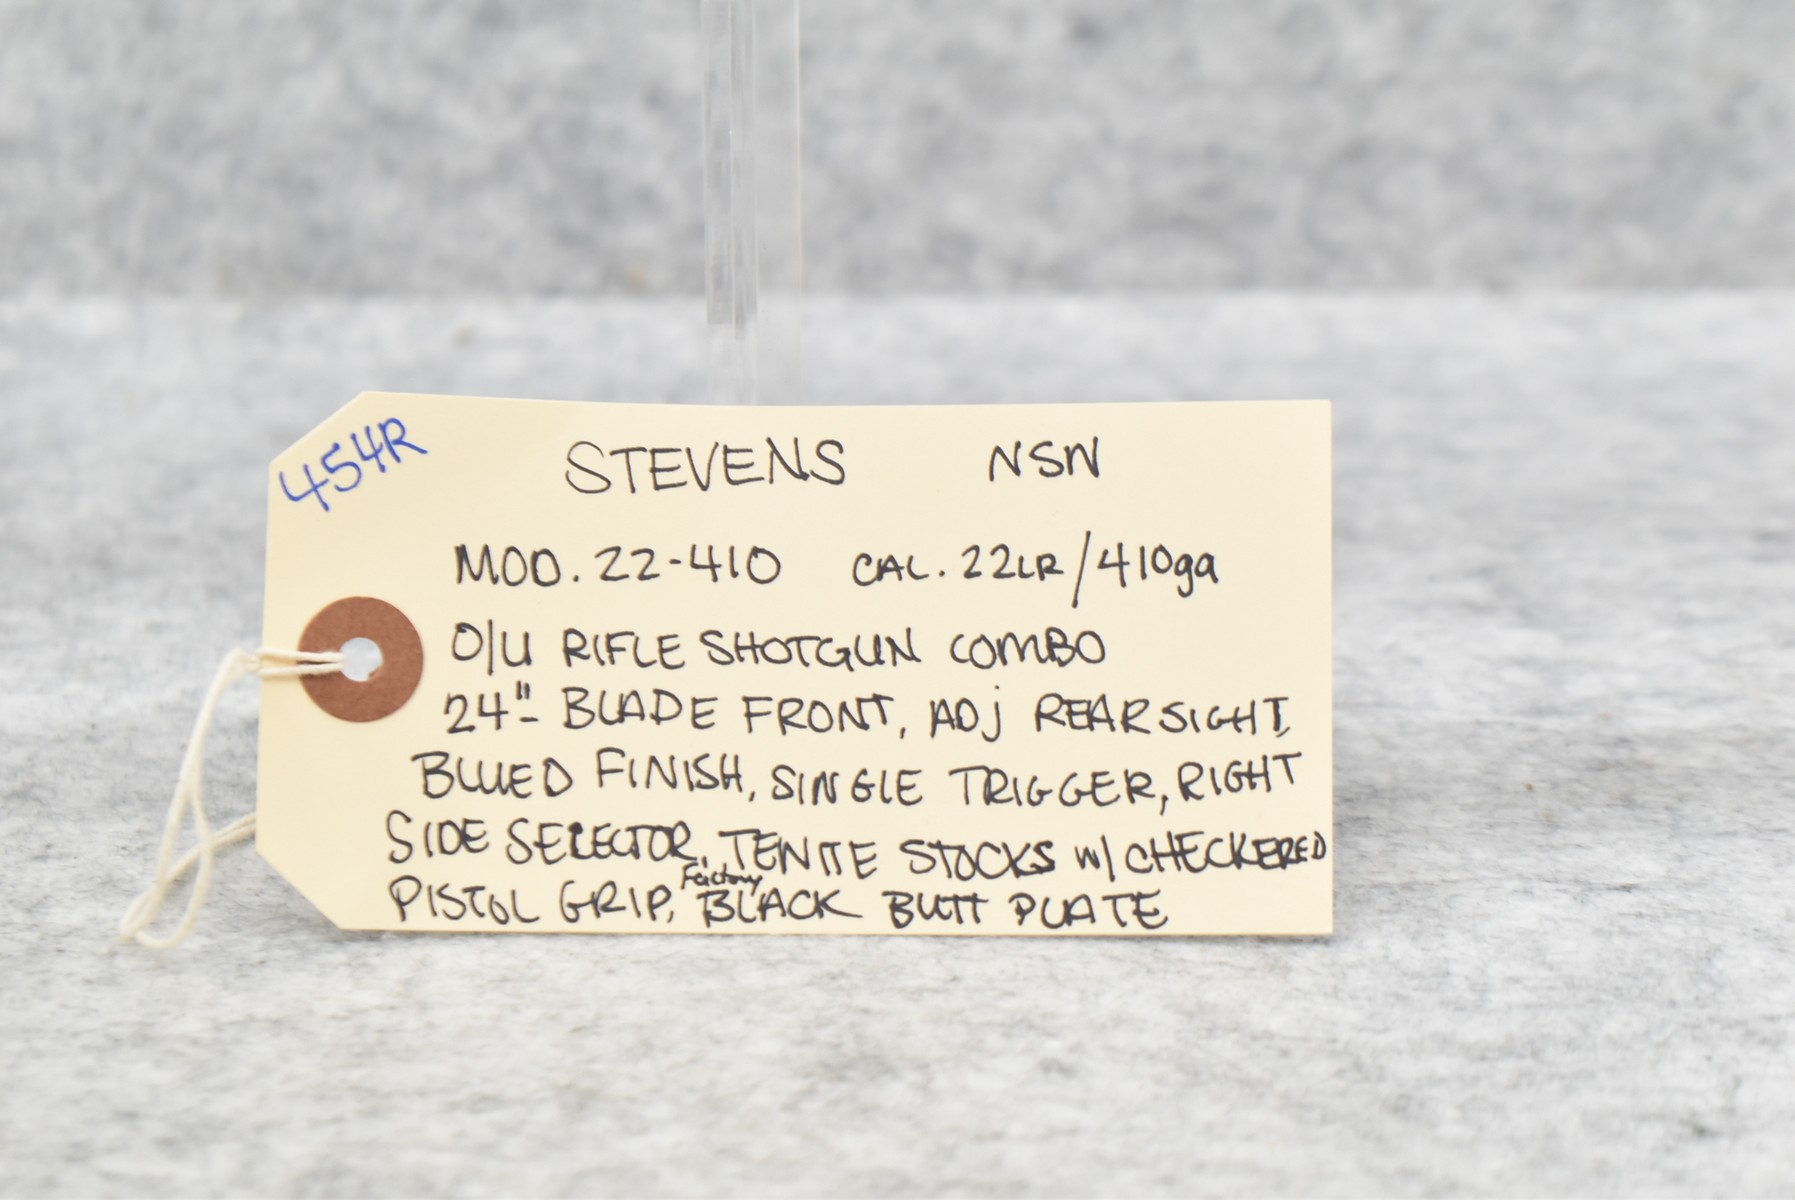 454R
STEVENS NSN
MOD. 22-410 CAL. 22LR/410ga
O/U RIFLE SHOTGUN COMBO
24"- BLADE FRONT, ADJ REAR SIGHT,
BLUED FINISH, SINGLE TRIGGER, RIGHT
SIDE SELECTOR, TENITE STOCKS W/ CHECKERED
PISTOL GRIP, Factory BLACK BUTT PLATE